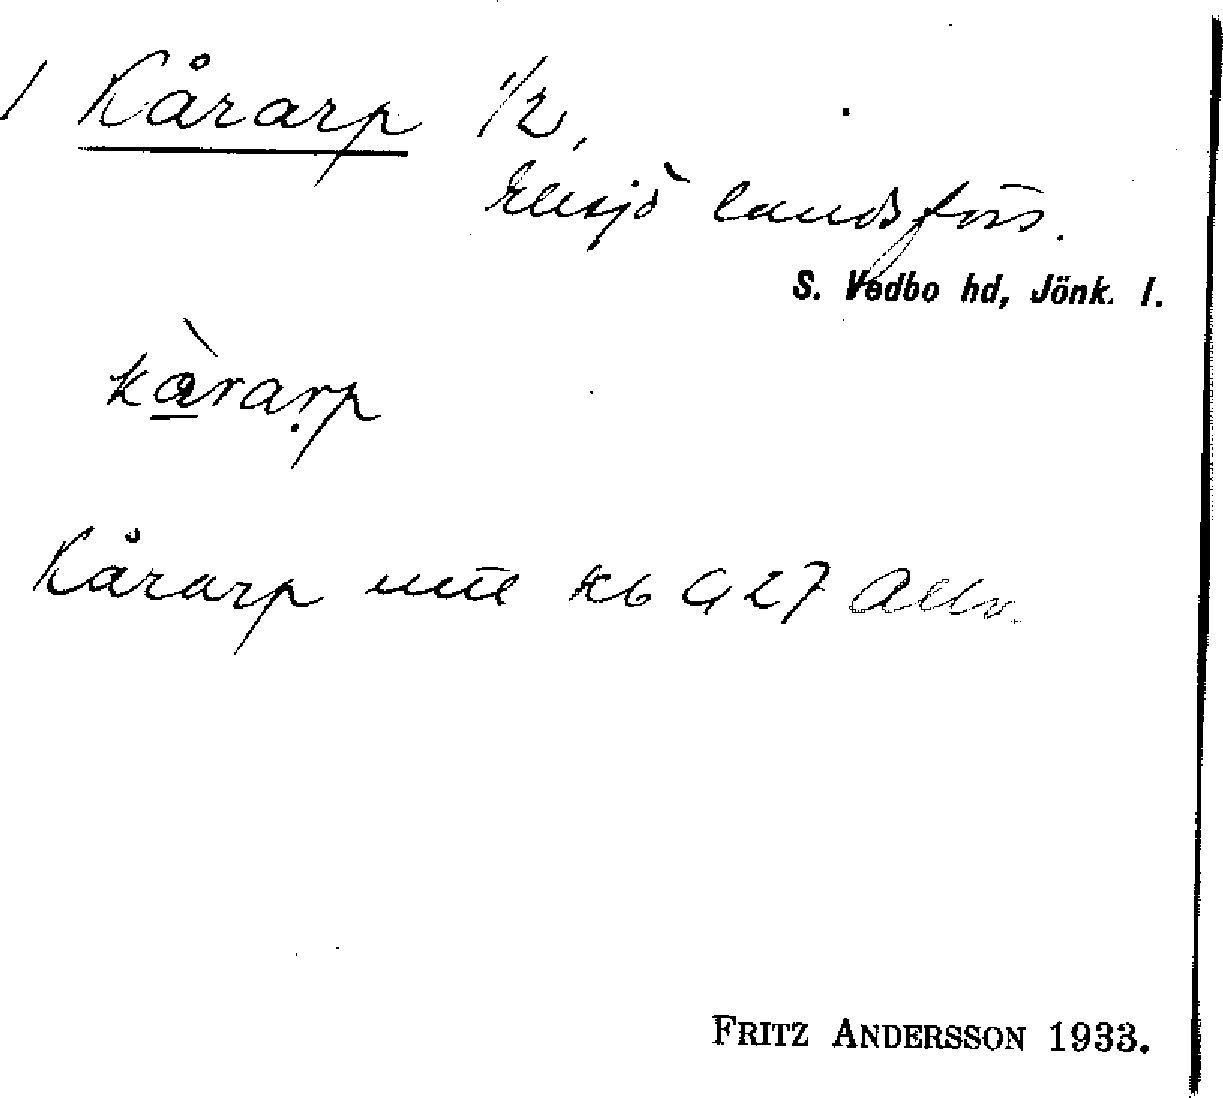 1 Kårarp 1/2,
Eksjö landsförs.
S. Vedbo hd, Jönk. l.
kàrarp
Kårarp utt kb G 27
FRITZ ANDERSSON 1933.